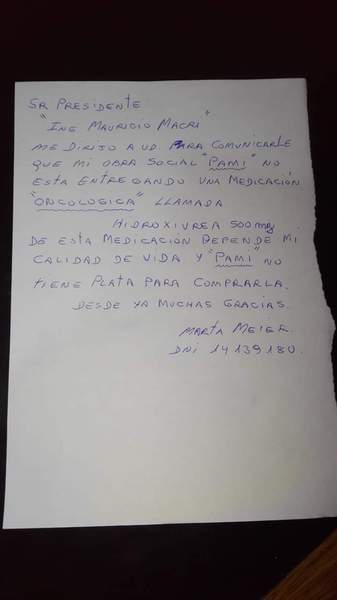 SR PRESIDENTE
"ING MAURICIO MACRI"
ME DIRIJO A UD. PARA COMUNICARLE
QUE MI OBRA SOCIAL "PAMI" NO
ESTA ENTREGANDO UNA MEDICACIÓN
"ONCOLOGICA" LLAMADA
HIDROXIUREA 500 mg
DE ESTA MEDICACIÓN DEPENDE MI
CALIDAD DE VIDA Y "PAMI" NO
TIENE PLATA PARA COMPRARLA.
DESDE YA MUCHAS GRACIAS.
MARTA MEIER.
DNI 14139180.